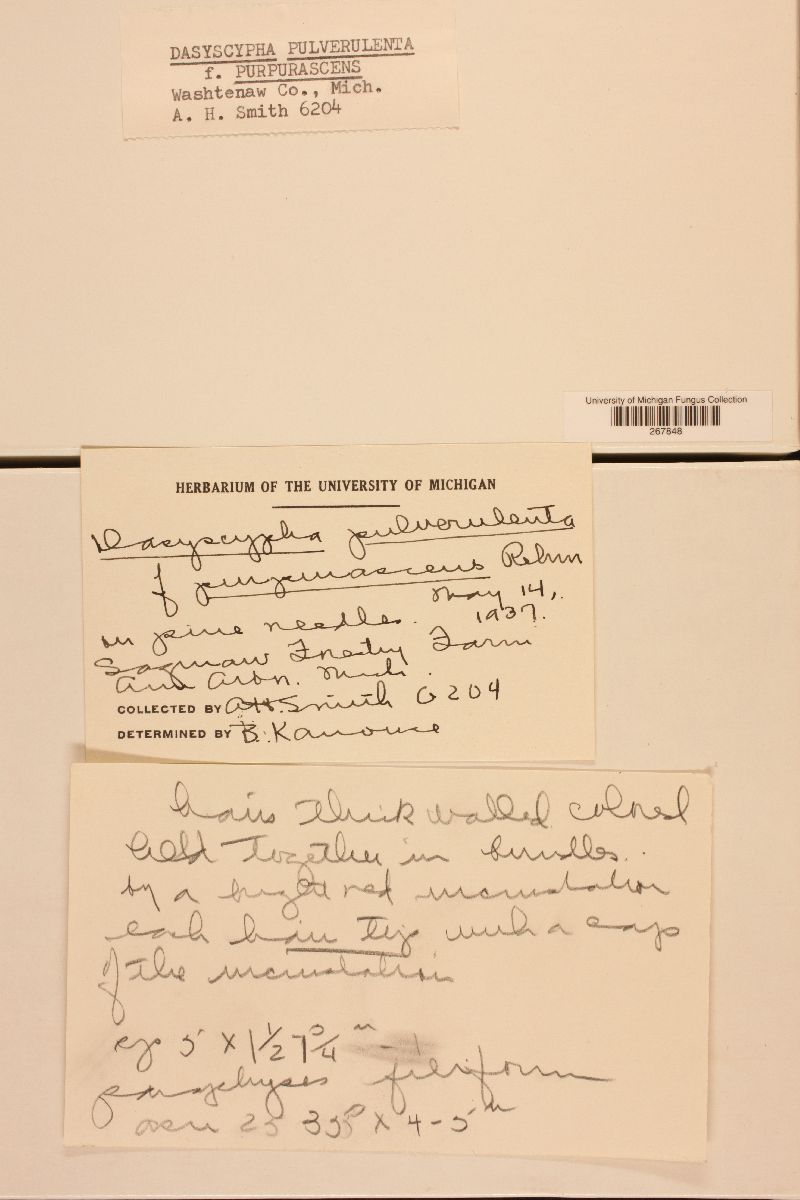 DASYSCYPHA PULVERULENTA
f. PURPURASCENS
Washtenaw Co., Mich.
A. H. Smith 6204
University of Michigan Fungus Collection
267648
HERBARIUM OF THE UNIVERSITY OF MICHIGAN
Dasyscypha pulverulenta
f purpurascens Rehm
May 14,
on pine needles. 1937.
Saginaw Forestry Farm
Ann Arbor. Mich.
COLLECTED BY A.H. Smith 6204
DETERMINED BY B. Kanouse
hairs thick walled colored
held together in bundles.
by a bright red incrustation
each hair tip with a cap
of the incrustation
sp 5 X 1 1/2
paraphyses filiform
asci 25 35 X 4-5 u